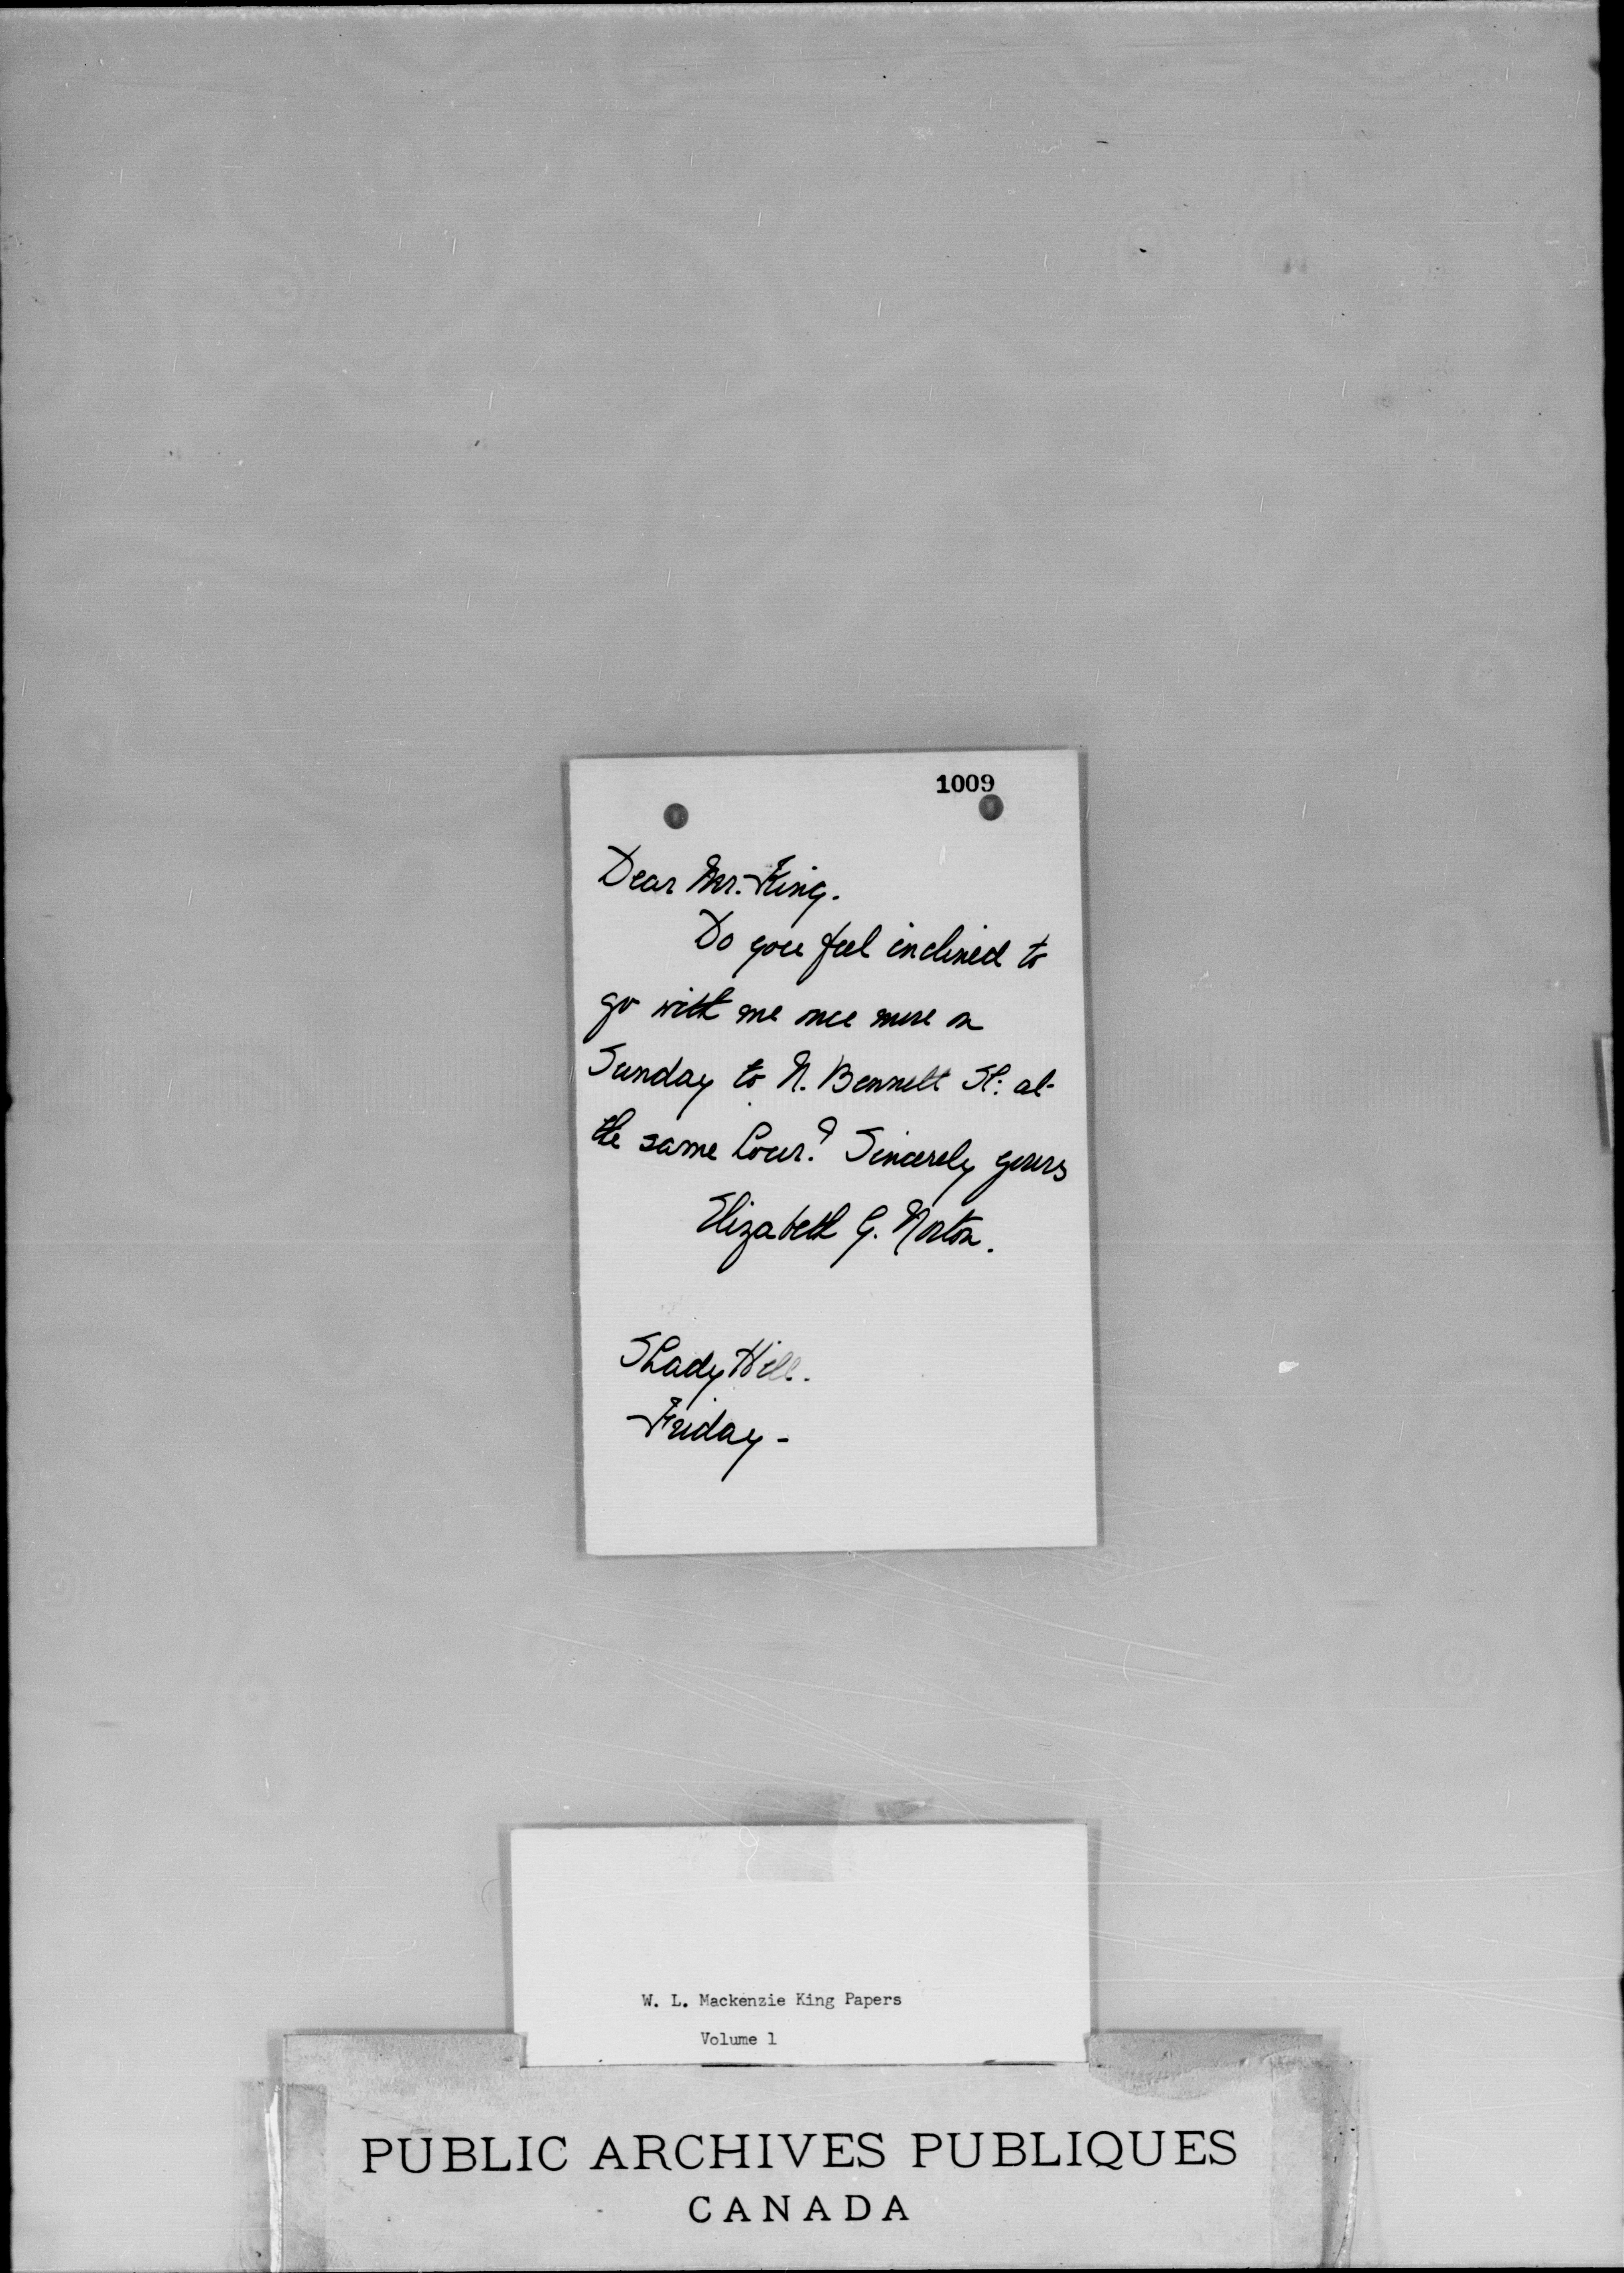 1009
Dear Mr. King.
Do you feel inclined to
go with me once more on
Sunday to N. Bennett St. at
the same hour? Sincerely yours
Elizabeth G. Norton.
Shady Hill.
Friday -
W. L. Mackenzie King Papers
Volume 1
PUBLIC ARCHIVES PUBLIQUES
CANADA